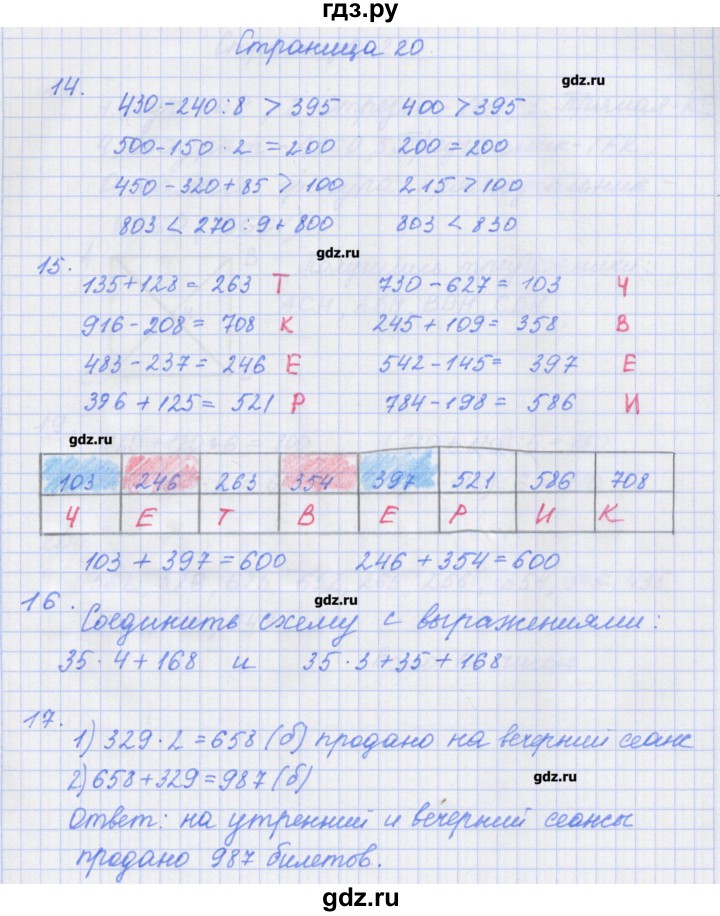 гдз.ру
Страница 20
14. gdz.ru
430-240:8 > 395 400 > 395
500-150·2 = 200 200 = 200
450-320+85 > 100 215 > 100
803 < 270:9+800 803 < 830
gdz.ru
15.
135+128= 263 Т 730-627= 103 Ч
916-208= 708 К 245+109= 358 В
483-237= 246 Е 542-145= 397 Е
396+125= 521 Р 784-198= 586 И
gdz.ru
103 246 263 354 397 521 586 708
Ч Е Т В Е Р И К
103+397=600 246+354=600
16. gdz.ru
Соединить схему с выражениями:
35·4+168 и 35·3+35+168
17.
1) 329·2=658 (б) продано на вечерний сеанс
2) 658+329=987 (б) gdz.ru
Ответ: на утренний и вечерний сеансы
продано 987 билетов.
gdz.ru